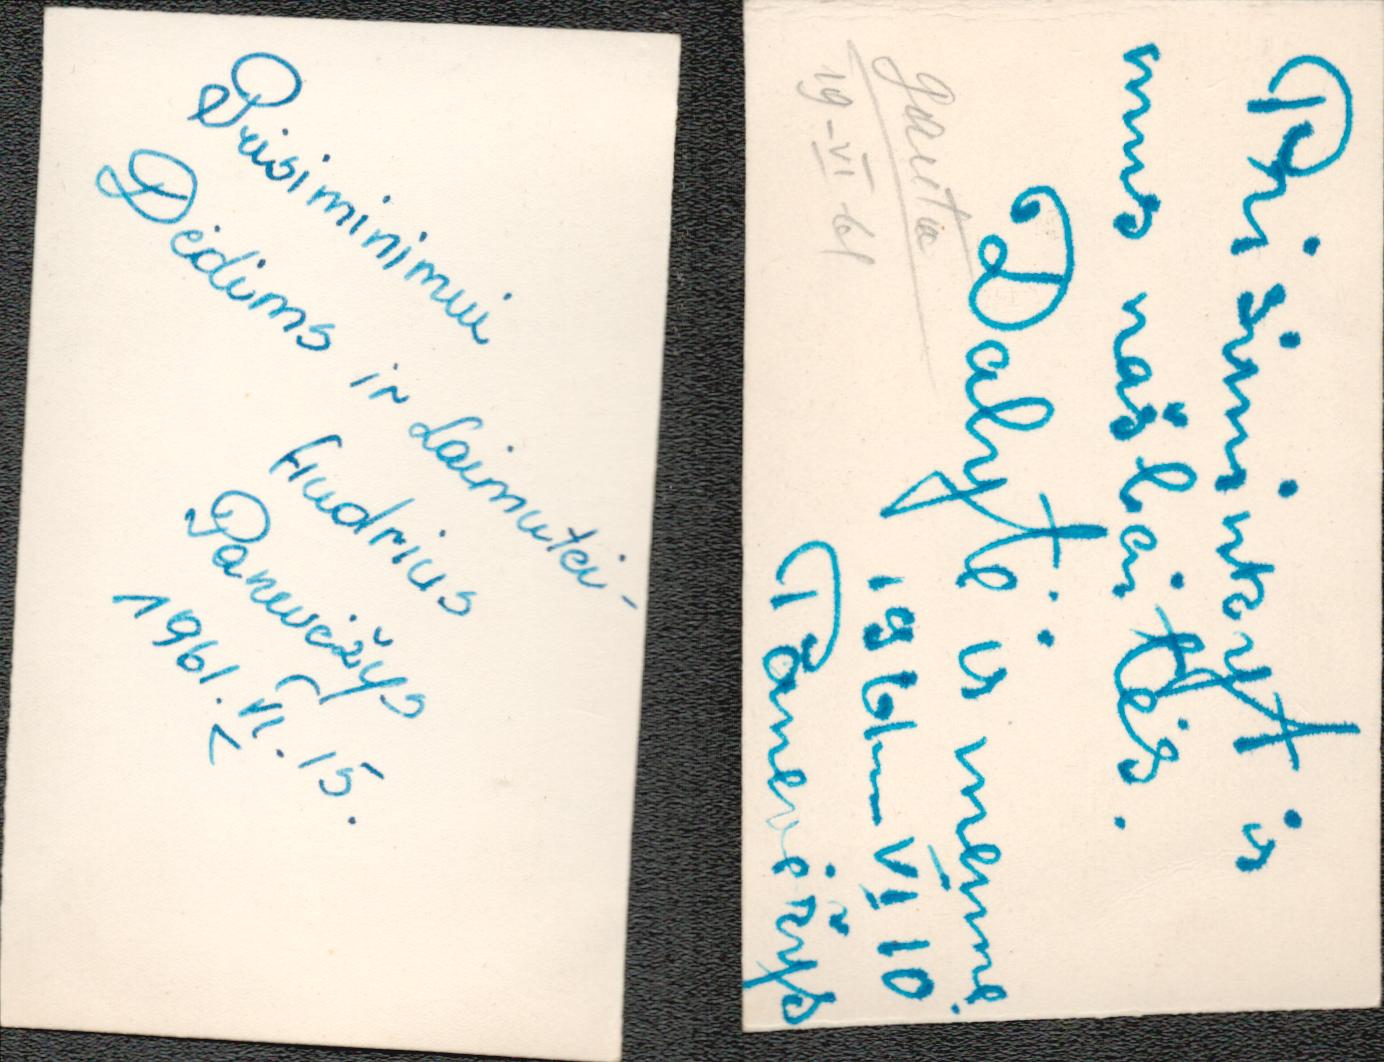 Prisiminimui
Dėdims ir Laimutei-
Audrius
Panevėžys
1961.VI.15.
Prisiminkyt ir
mus našlaitės.
Dalytė ir meme
1961m VI 10
Panevėžys
gauta
19-VI 61